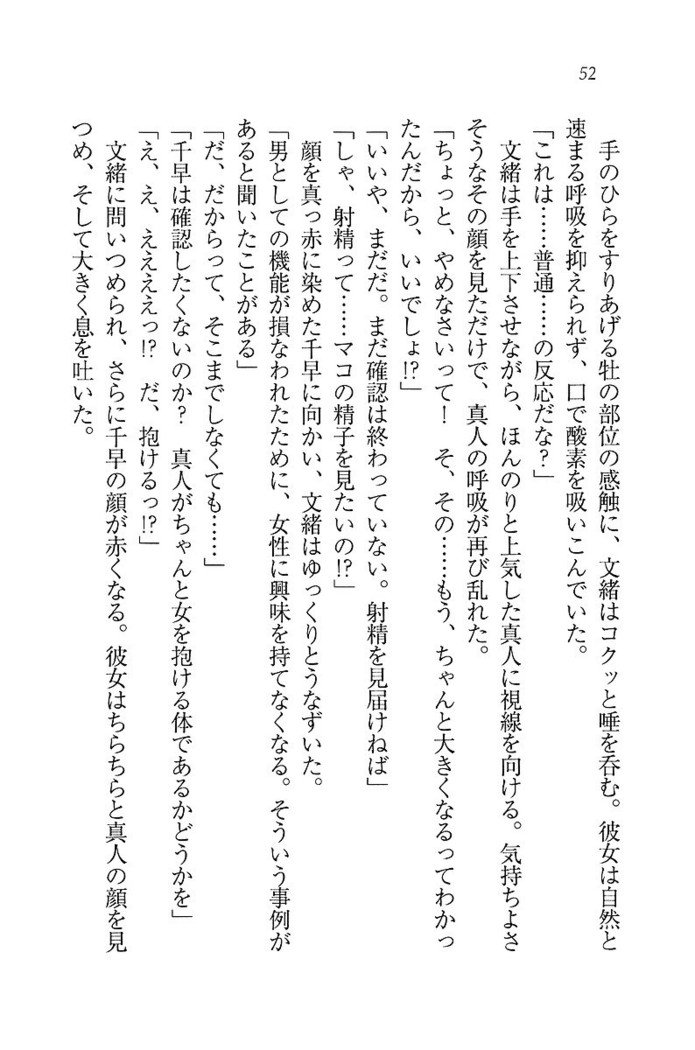 52
手のひらをすりあげる牡の部位の感触に、文緒はコクッと唾を呑む。彼女は自然と
速まる呼吸を抑えられず、口で酸素を吸いこんでいた。
「これは……普通……の反応だな?」
文緒は手を上下させながら、ほんのりと上気した真人に視線を向ける。気持ちよさ
そうなその顔を見ただけで、真人の呼吸が再び乱れた。
「ちょっと、やめなさいって! そ、その……もう、ちゃんと大きくなるってわかっ
たんだから、いいでしょ!?」
「いいや、まだだ。まだ確認は終わっていない。射精を見届けねば」
「しゃ、射精って……マコの精子を見たいの!?」
顔を真っ赤に染めた千早に向かい、文緒はゆっくりとうなずいた。
「男としての機能が損なわれたために、女性に興味を持てなくなる。そういう事例が
あると聞いたことがある」
「だ、だからって、そこまでしなくても……」
「千早は確認したくないのか? 真人がちゃんと女を抱ける体であるかどうかを」
「え、え、ええええっ!? だ、抱けるっ!?」
文緒に問いつめられ、さらに千早の顔が赤くなる。彼女はちらちらと真人の顔を見
つめ、そして大きく息を吐いた。